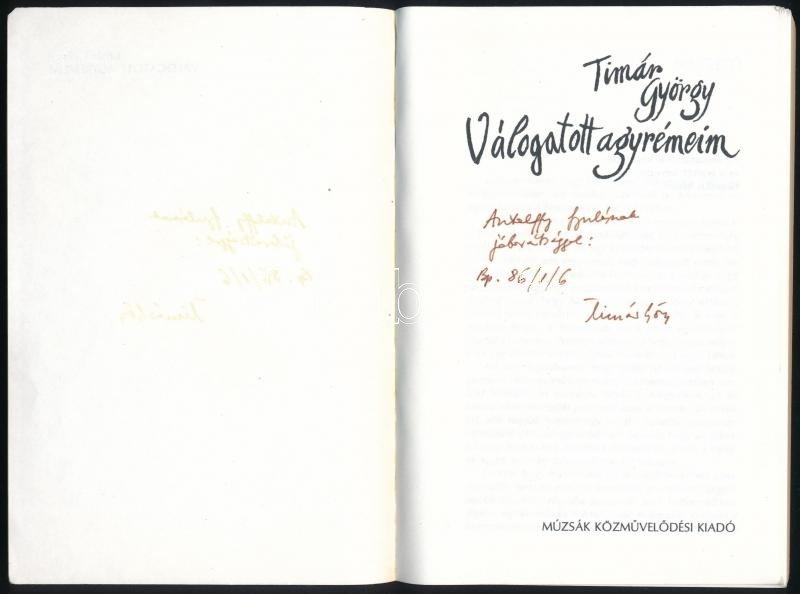 Timár
György
Válogatott agyrémeim
Antalffy Gyulának
jóbarátsággal:
Bp. 86/1/6
Timár Gy
MÚZSÁK KÖZMŰVELŐDÉSI KIADÓ